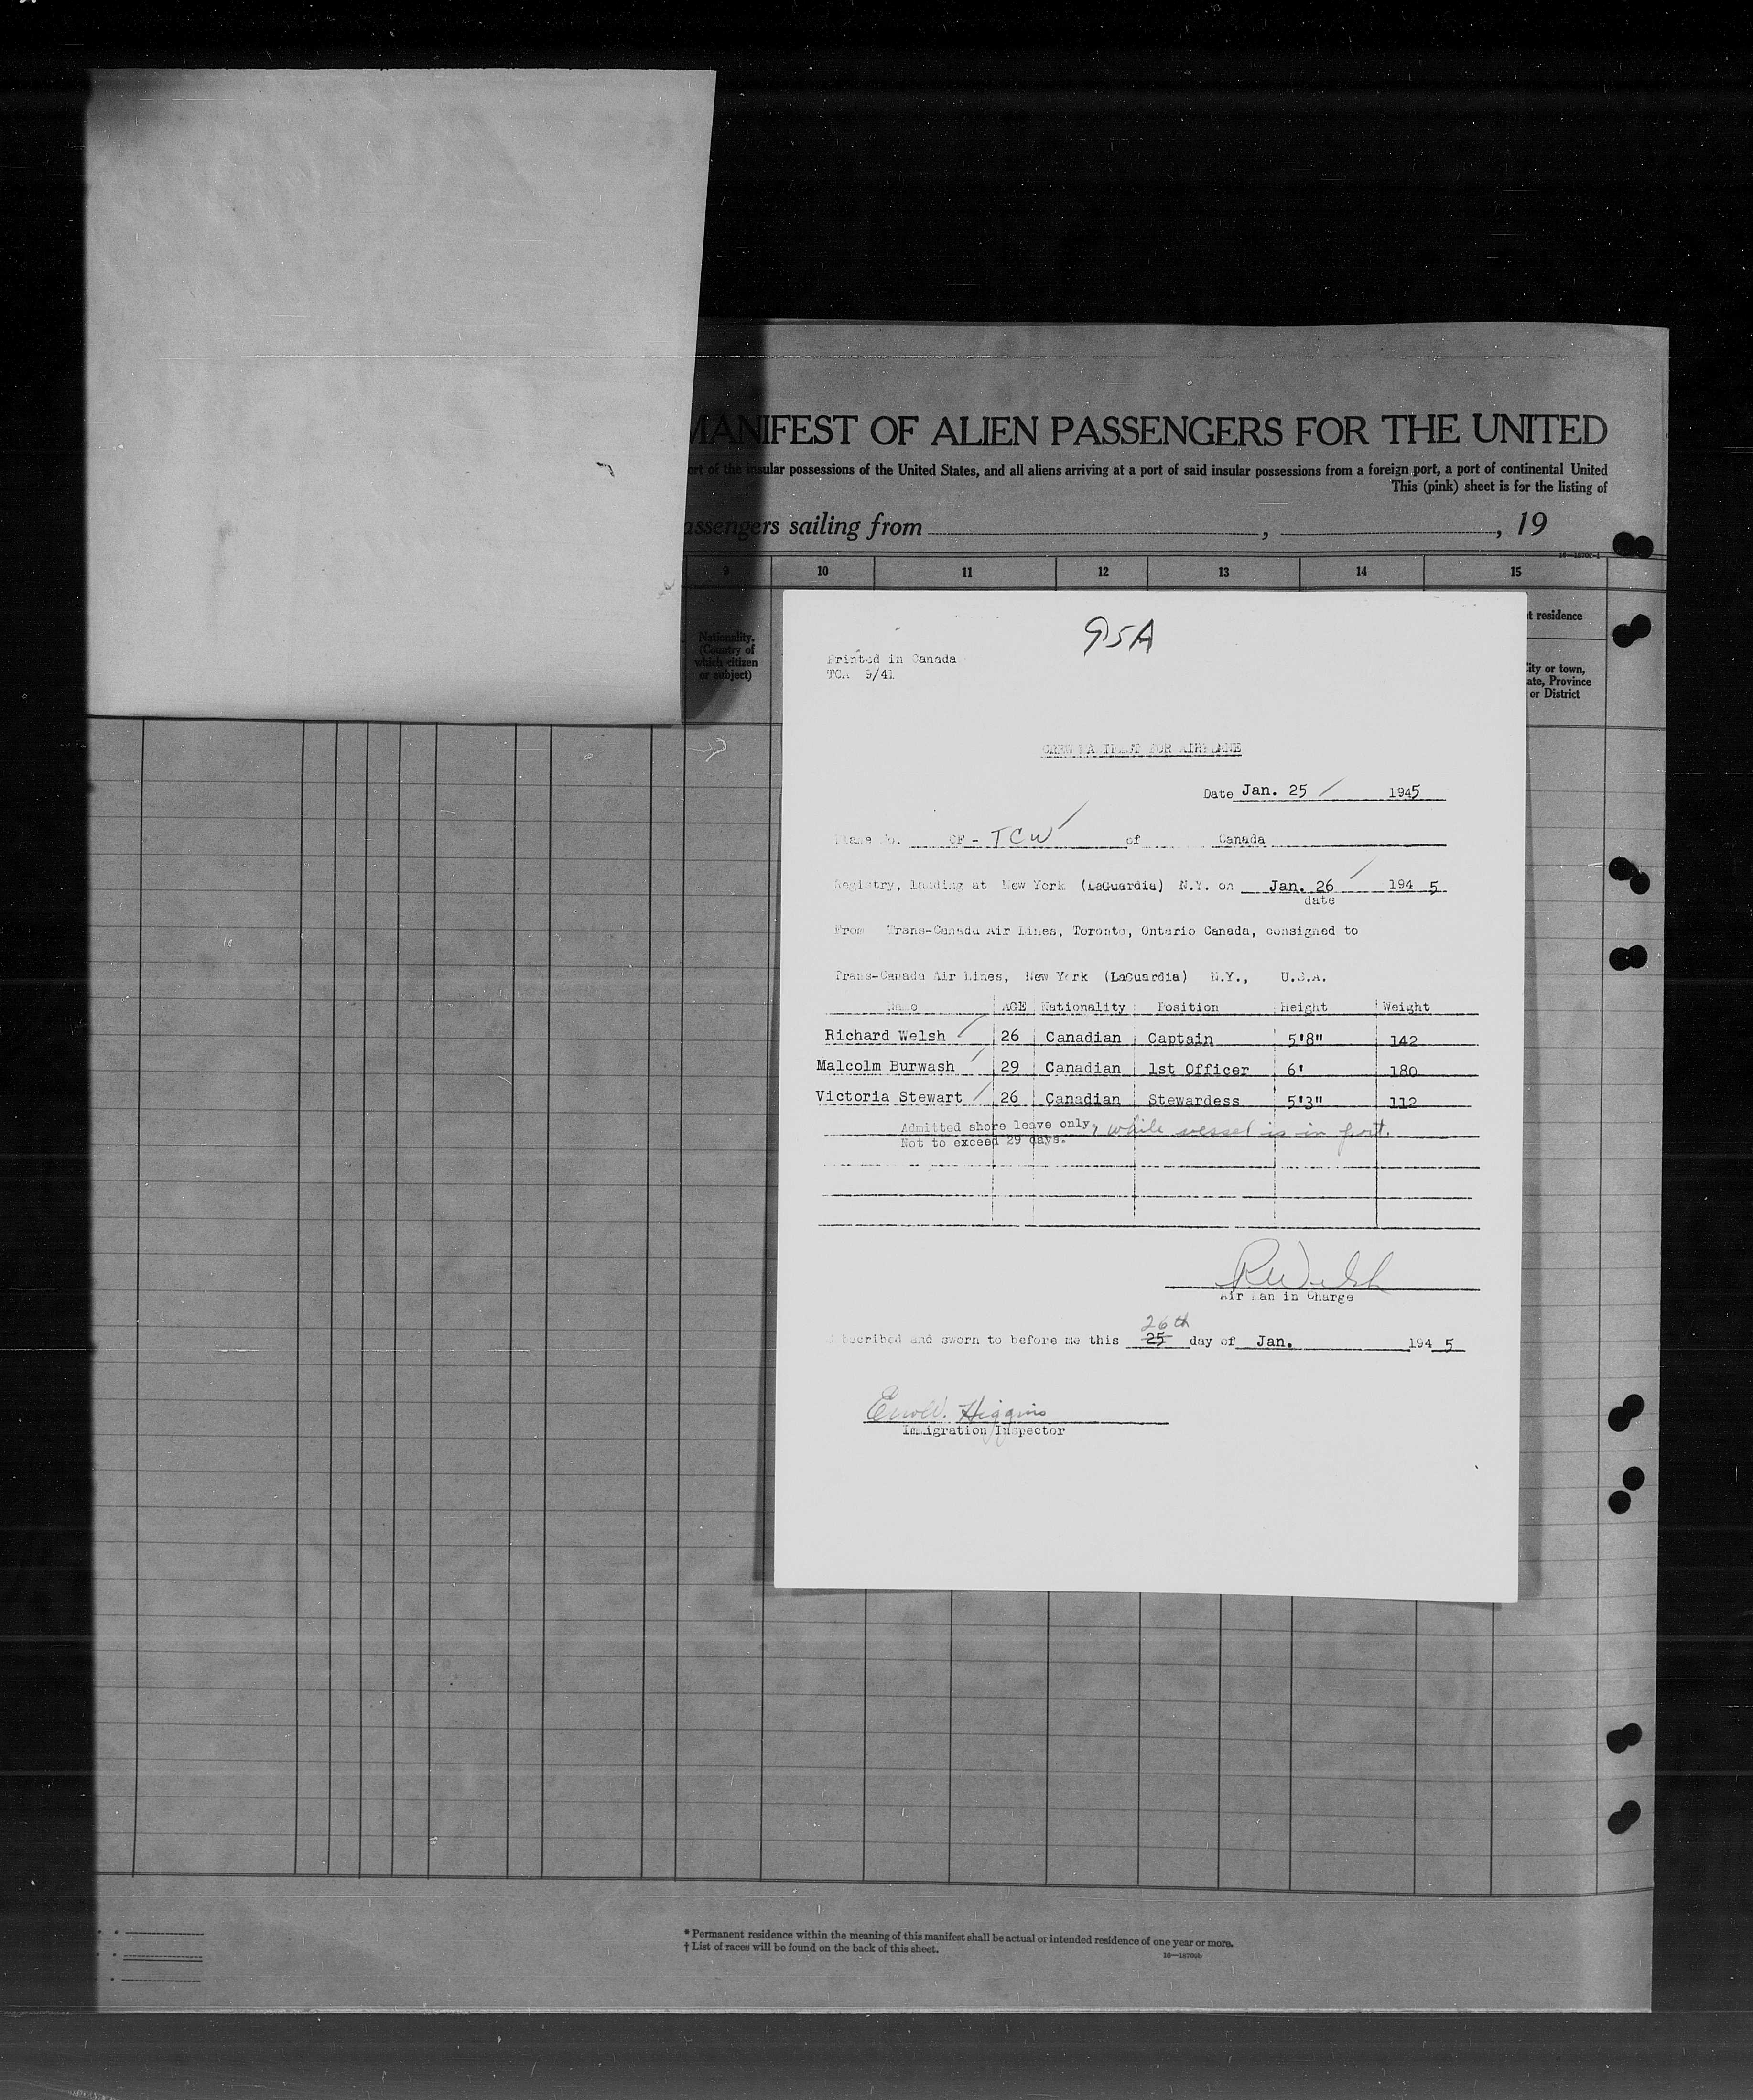 MANIFEST OF ALIEN PASSENGERS FOR THE UNITED
ort of the insular possessions of the United States, and all aliens arriving at a port of said insular possessions from a foreign port, a port of continental United
This (pink) sheet is for the listing of
assengers sailing from , , 19
9 10 11 12 13 14 15
Nationality.
(Country of
which citizen
or subject)
t residence
ity or town,
ate, Province
or District
95A
Printed in Canada
TCA 9/41
CREW MANIFEST FOR AIRPLANE
Date Jan. 25 1945
Plane No. CF - TCW of Canada
Registry, landing at New York (LaGuardia) N.Y. on Jan. 26 194 5
date
From Trans-Canada Air Lines, Toronto, Ontario Canada, consigned to
Trans-Canada Air Lines, New York (LaGuardia) N.Y., U.S.A.
Name AGE Nationality Position Height Weight
Richard Welsh 26 Canadian Captain 5'8" 142
Malcolm Burwash 29 Canadian 1st Officer 6' 180
Victoria Stewart 26 Canadian Stewardess 5'3" 112
Admitted shore leave only, while vessel is in port.
Not to exceed 29 days.
RWelsh
Air Man in Charge
26th
bscribed and sworn to before me this 25 day of Jan. 194 5
Higgins
Immigration Inspector
* Permanent residence within the meaning of this manifest shall be actual or intended residence of one year or more.
† List of races will be found on the back of this sheet.